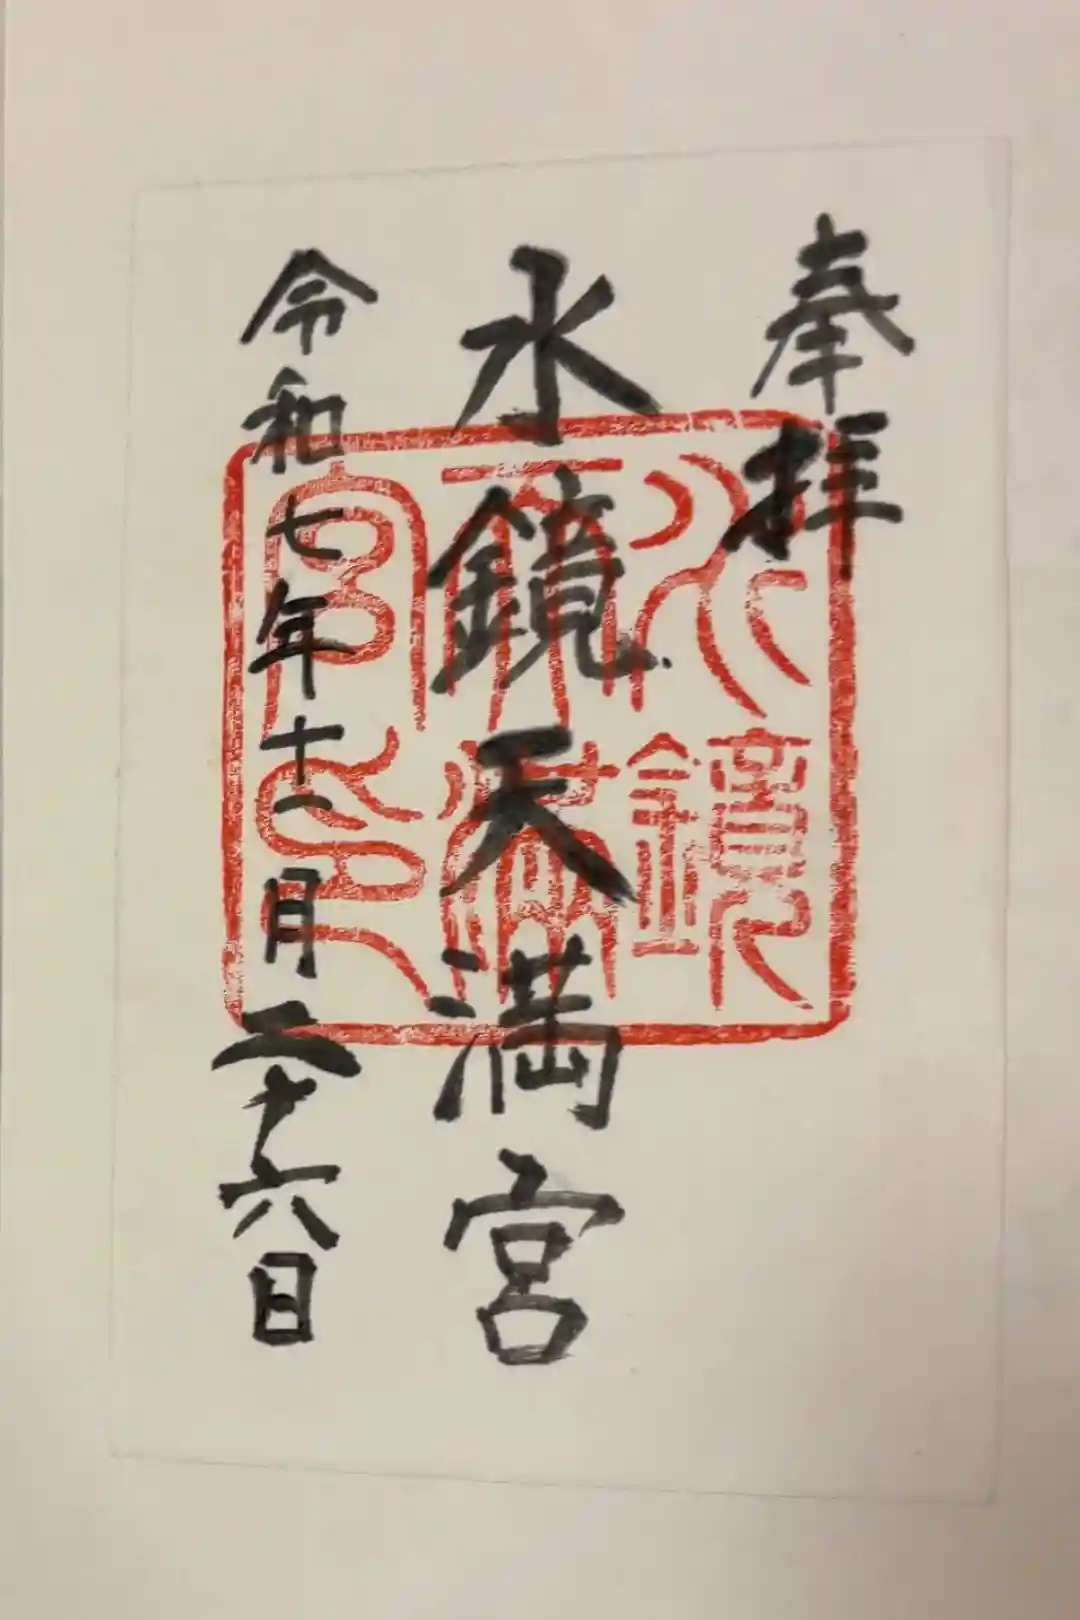 奉拝
水鏡天満宮
令和七年十一月二十六日
水鏡
天満
宮印